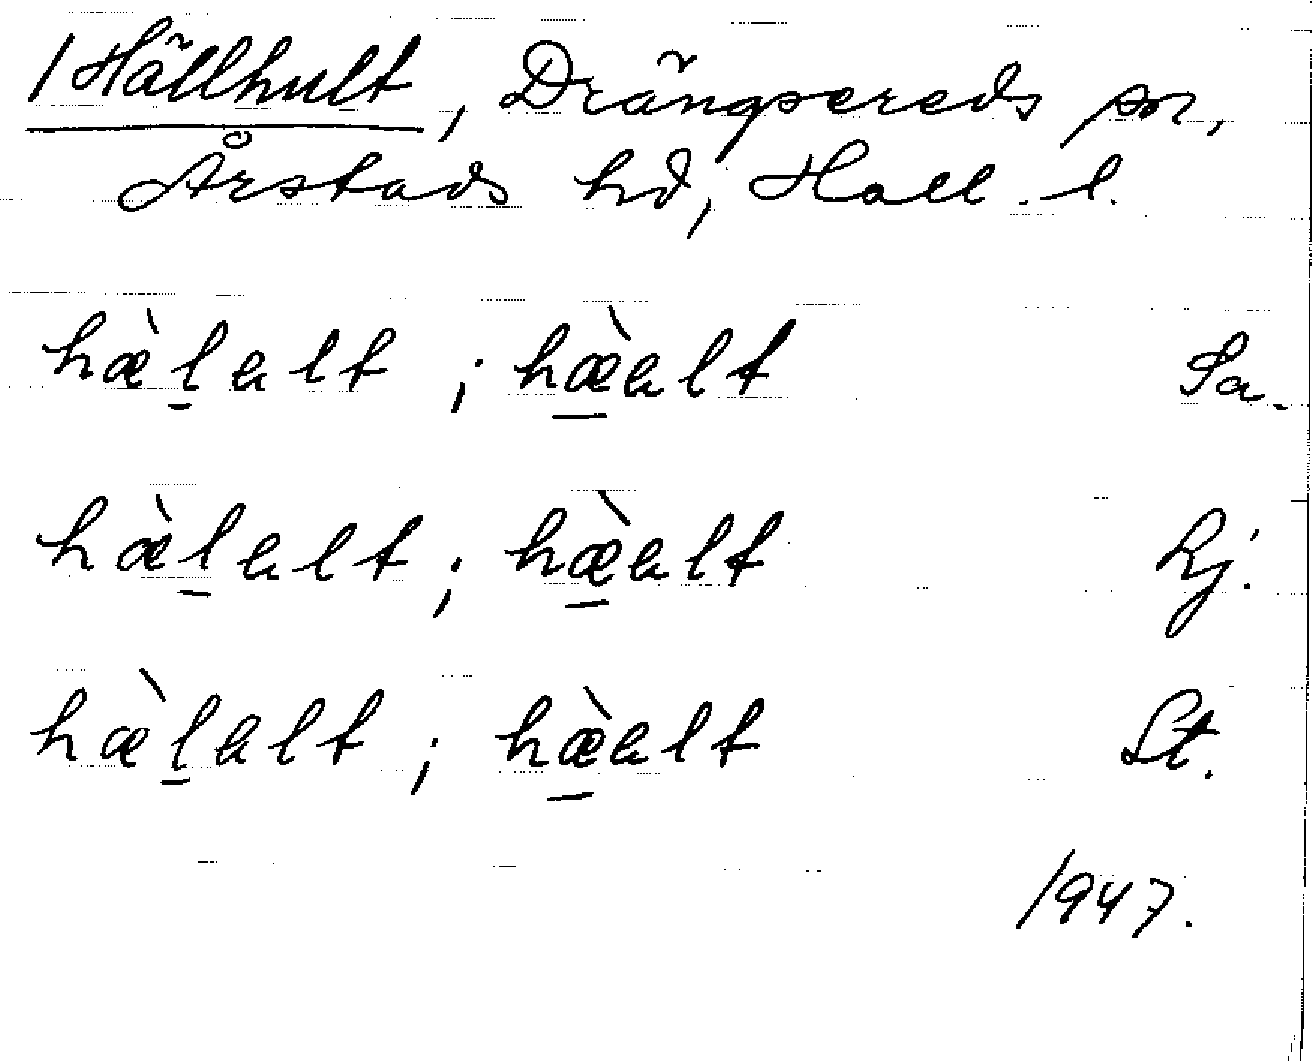 / Hällhult, Drängsereds sn,
Årstads hd, Hall. l.
hæ̀l̲ɐlt ; hæ̲̀ɐlt Sa.
hæ̀l̲ɐlt ; hæ̲̀ɐlt Lj.
hæ̀l̲ɐlt ; hæ̲̀ɐlt St.
1947.